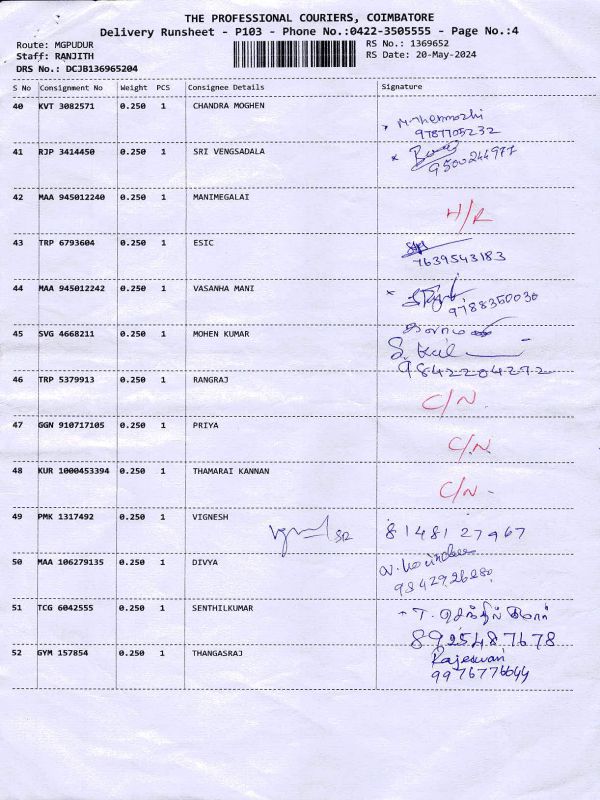 THE PROFESSIONAL COURIERS, COIMBATORE
Delivery Runsheet - P103 - Phone No.:0422-3505555 - Page No.:4
Route: MGPUDUR
RS No.: 1369652
Staff: RANJITH
RS Date: 20-May-2024
DRS No.: DCJB136965204
S No Consignment No Weight PCS Consignee Details Signature
40 KVT 3082571 0.250 1 CHANDRA MOGHEN
9787705232
41 RJP 3414450 0.250 1 SRI VENGSADALA
9500244977
42 MAA 945012240 0.250 1 MANIMEGALAI
H/R
43 TRP 6793604 0.250 1 ESIC
7639543183
44 MAA 945012242 0.250 1 VASANHA MANI
9788350030
45 SVG 4668211 0.250 1 MOHEN KUMAR
9842204272
46 TRP 5379913 0.250 1 RANGRAJ
C/N.
47 GGN 910717105 0.250 1 PRIYA
C/N.
48 KUR 1000453394 0.250 1 THAMARAI KANNAN
C/N.
49 PMK 1317492 0.250 1 VIGNESH
8148127967
50 MAA 106279135 0.250 1 DIVYA
9842926280
51 TCG 6042555 0.250 1 SENTHILKUMAR
T. செந்தில் குமார்
8925487678
52 GYM 157854 0.250 1 THANGASRAJ
Rajeswari
9976776644